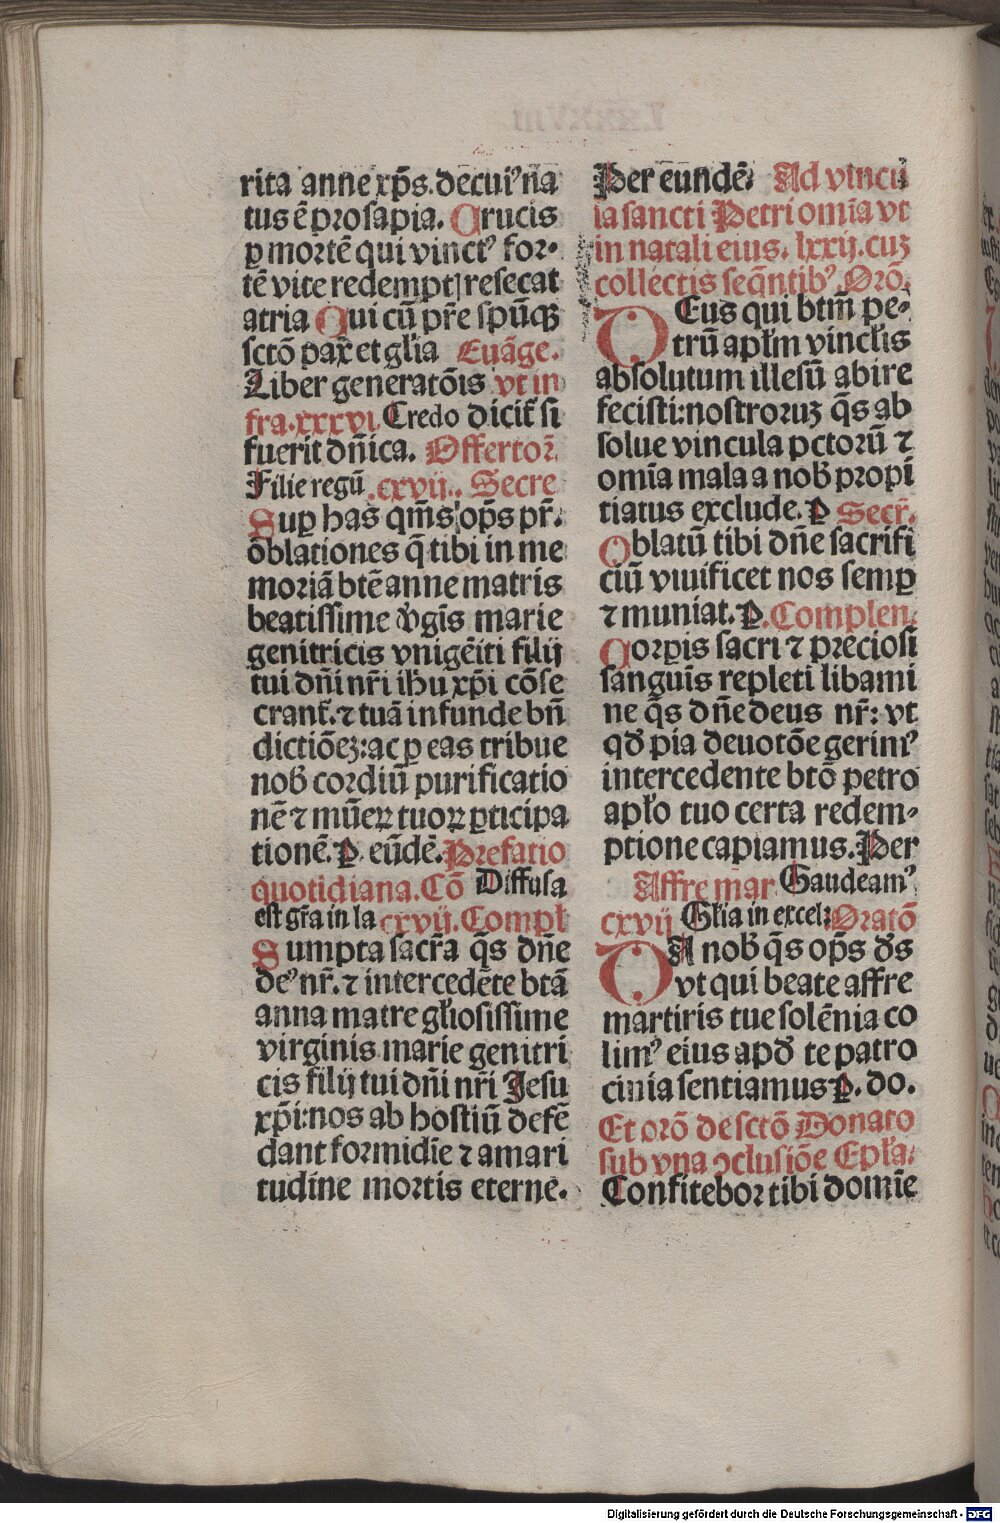 rita anne xp̄s. decuiꝰ na
tus ē prosapia. Crucis
ꝑ mortē qui vinctꝰ for-
tē vite redemptꝭ resecat
atria Qui cū pr̄e spūqꝫ
sctō pax et gl̄ia Euāge.
Liber generatōis vt in
fra. xxxvi Credo dicit̄ si
fuerit dn̄ica. Offertor̄.
Filie regū .cxvij.. Secre
Suꝑ has qm̄s op̄s pr̄.
oblationes q̄ tibi in me
moriā btē anne matris
beatissime v̓gīs marie
genitricis vnigēiti filij
tui dn̄i nr̄i ihu xp̄i cōse
crant̄. ⁊ tuā infunde bn̄
dictiōeꝫ: ac ꝑ eas tribue
nob̓ cordiū purificatio
nē ⁊ mūeꝝ tuoꝝ ꝑticipa
tionē. P. eūdē. Prefatio
quotidiana. Cō Diffusa
est gr̄a in la cxvij. Compl̓
Sumpta sacr̄a q̄s dn̄e
deꝰ nr̄. ⁊ intercedēte btā
anna matre gl̓iosissime
virginis marie genitri
cis filij tui dn̄i nr̄i Jesu
xp̄i: nos ab hostiū defē
dant formidīe ⁊ amari
tudine mortis eterne.
Per eundē. Ad vincu
la sancti Petri omīa vt
in natali eius. lxxij. cuꝫ
collectis seq̄ntibꝰ. Orō.
Deus qui btm̄ pe-
trū apl̓m vincl̓is
absolutum illesū abire
fecisti: nostroruꝫ q̄s ab
solue vincula pctorū ⁊
omīa mala a nob̓ propī
tiatus exclude. P Secr̄.
Oblatū tibi dn̄e sacrifi
ciū viuificet nos semꝑ
⁊ muniat. P. Complen.
Corꝑis sacri ⁊ preciosi
sanguīs repleti libami
ne q̄s dn̄e deus nr̄: vt
qd̓ pia deuotōe gerimꝰ
intercedente btō petro
apl̓o tuo certa redem-
ptione capiamus. Per
Affre mar̄ Gaudeamꝰ
cxvij Gl̓ia in excel: Oratō
Da nob̓ q̄s op̄s d̓s
vt qui beate affre
martiris tue solēnia co
limꝰ eius apd̓ te patro
cinia sentiamus P. do.
Et orō de sctō Donato
sub vna ꝯclusiōe Epl̓a.
Confitebor tibi domīe
Digitalisierung gefördert durch die Deutsche Forschungsgemeinschaft - DFG